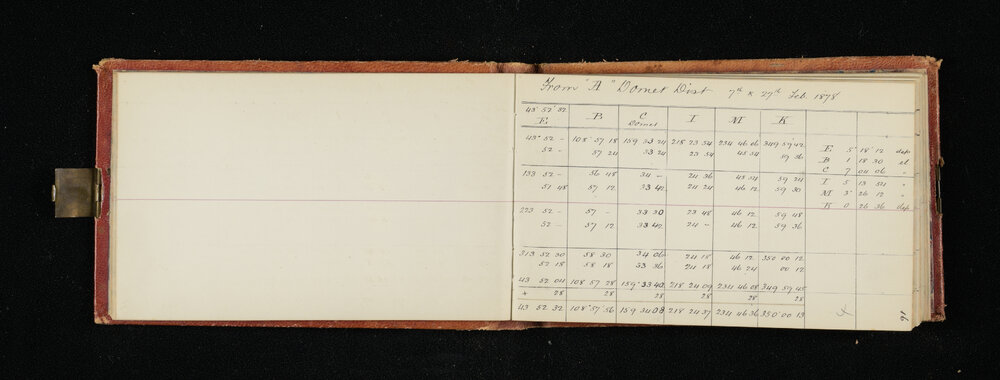 From "A" Domet Dist 7th & 27th Feb. 1878
43° 52' 32
E B C I M K
Domet
43° 52 - 108° 57 18 159 33 24 218 23 54 234 46 06 349 59 42
52 - 57 24 33 24 23 54 45 54 59 36
E 5° 18' 12 dep
B 1 18 30 el
C 7 04 06 "
133 52 - 56 48 34 - 24 36 45 54 59 24 I 5 13 54 "
51 48 57 12 33 42 24 24 46 12 59 30 M 3° 26 12 "
K 0 26 36 dep
223 52 - 57 - 33 30 23 48 46 12 59 48
52 - 57 12 33 42 24 - 46 12 59 36
313 52 30 58 30 34 06 24 18 46 12 350 00 12
52 18 58 18 33 36 24 18 46 24 00 12
43 52 04 108 57 28 159° 33 40 218 24 09 234 46 08 349 59 45
+ 28 28 28 28 28 28
43 52 32 108° 57' 56 159 34 08 218 24 37 234 46 36 350° 00 13
16